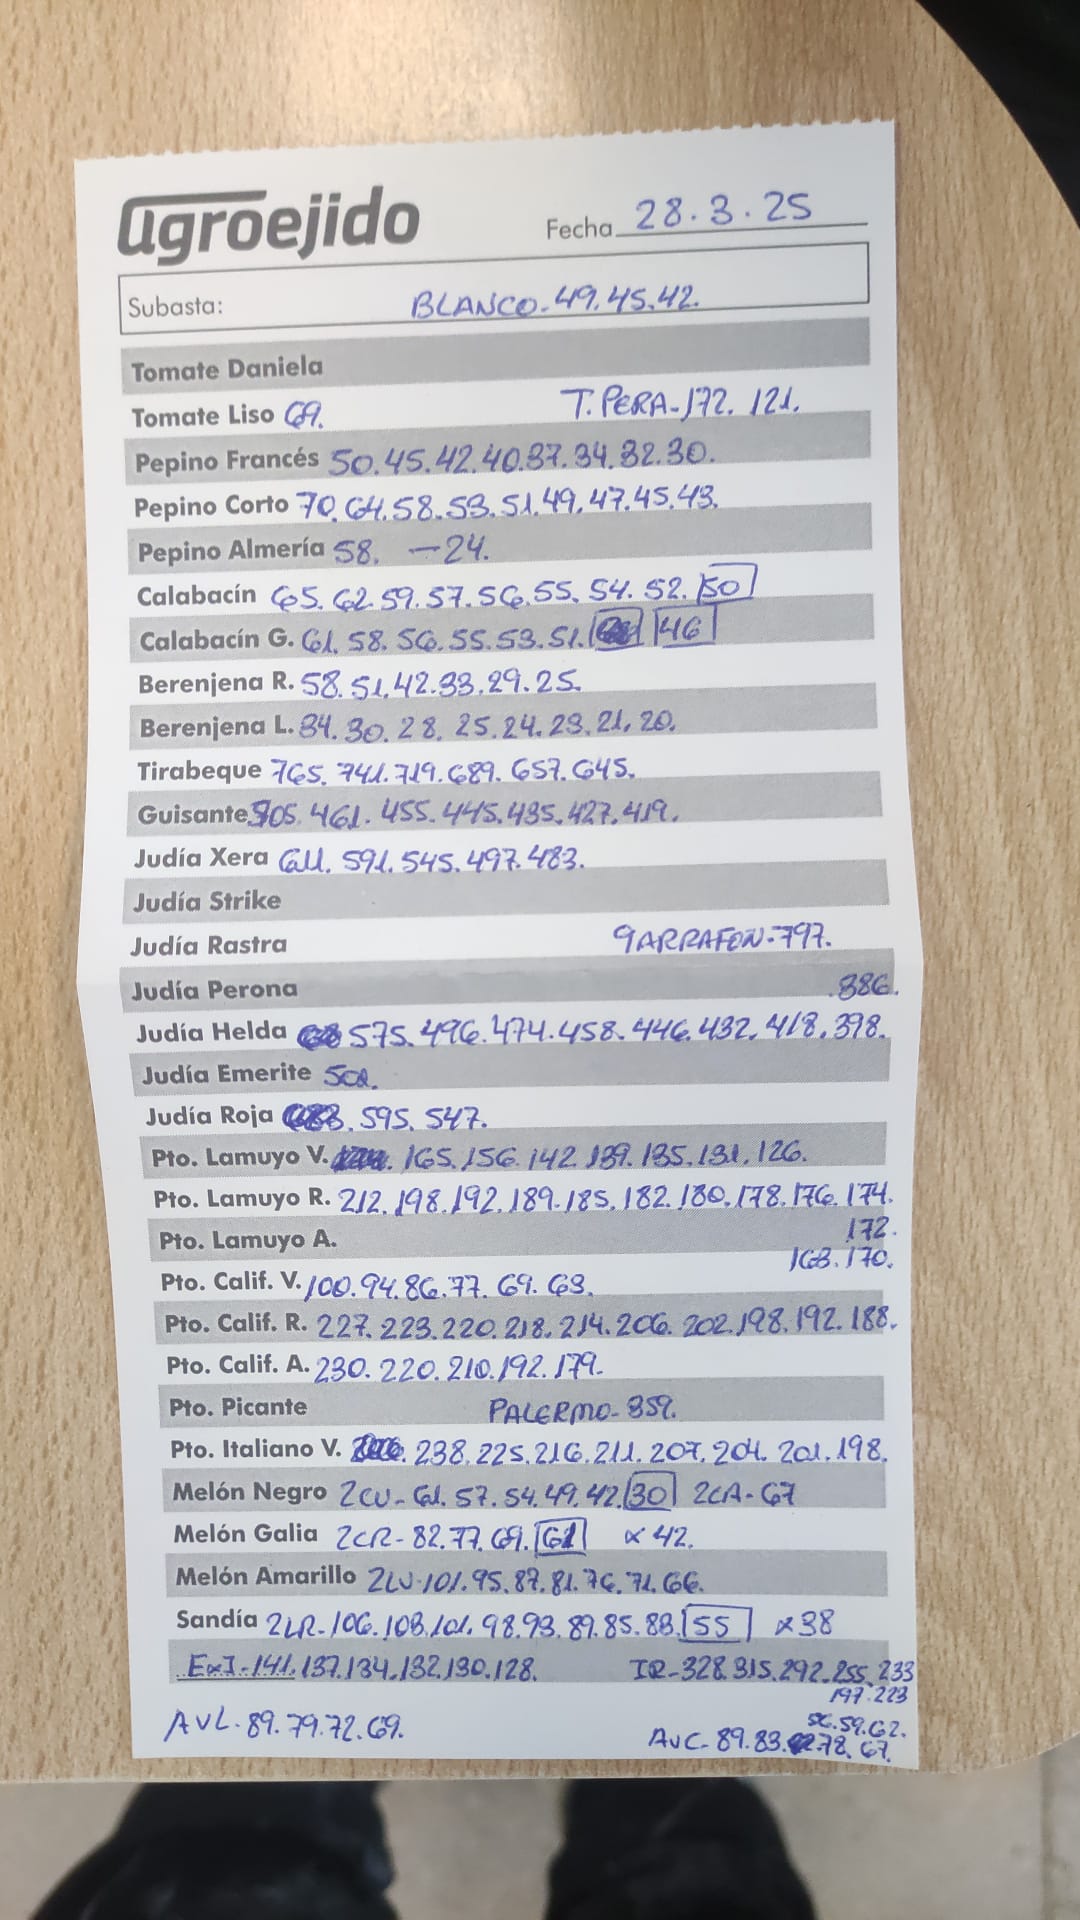 agroejido Fecha 28.3.25
Subasta: BLANCO-49.45.42.
Tomate Daniela
Tomate Liso 69. T.PERA-172. 121.
Pepino Francés 50.45.42.40.37.34.32.30.
Pepino Corto 70.64.58.53.51.49.47.45.43.
Pepino Almería 58. -24.
Calabacín 65.62.59.57.56.55.54.52.50
Calabacín G. 61.58.56.55.53.51. 46
Berenjena R. 58.51.42.33.29.25.
Berenjena L. 34.30.28.25.24.23.21.20.
Tirabeque 765.741.719.689.657.645.
Guisante 505.461.455.445.435.427.419.
Judía Xera 611.591.545.497.483.
Judía Strike
Judía Rastra GARRAFON-797.
Judía Perona .386.
Judía Helda 575.496.474.458.446.432.418.398.
Judía Emerite 501.
Judía Roja .595.547.
Pto. Lamuyo V. 165.156.142.139.135.131.126.
Pto. Lamuyo R. 212.198.192.189.185.182.180.178.176.174.
Pto. Lamuyo A. 172.
168.170.
Pto. Calif. V. 100.94.86.77.69.63.
Pto. Calif. R. 227.223.220.218.214.206.202.198.192.188.
Pto. Calif. A. 230.220.210.192.179.
Pto. Picante PALERMO-359.
Pto. Italiano V. 238.225.216.211.207.204.201.198.
Melón Negro 2CU-61.57.54.49.42.30 2CA-67
Melón Galia 2CR-82.77.69.61 x42.
Melón Amarillo 2LV-101.95.87.81.76.71.66.
Sandía 2LR-106.103.101.98.93.89.85.83.55 x38
ExI-141.137.134.132.130.128. IR-328.315.292.255.233
197.223
56.59.62.
AVL-89.79.72.69. AVC-89.83.78.67.